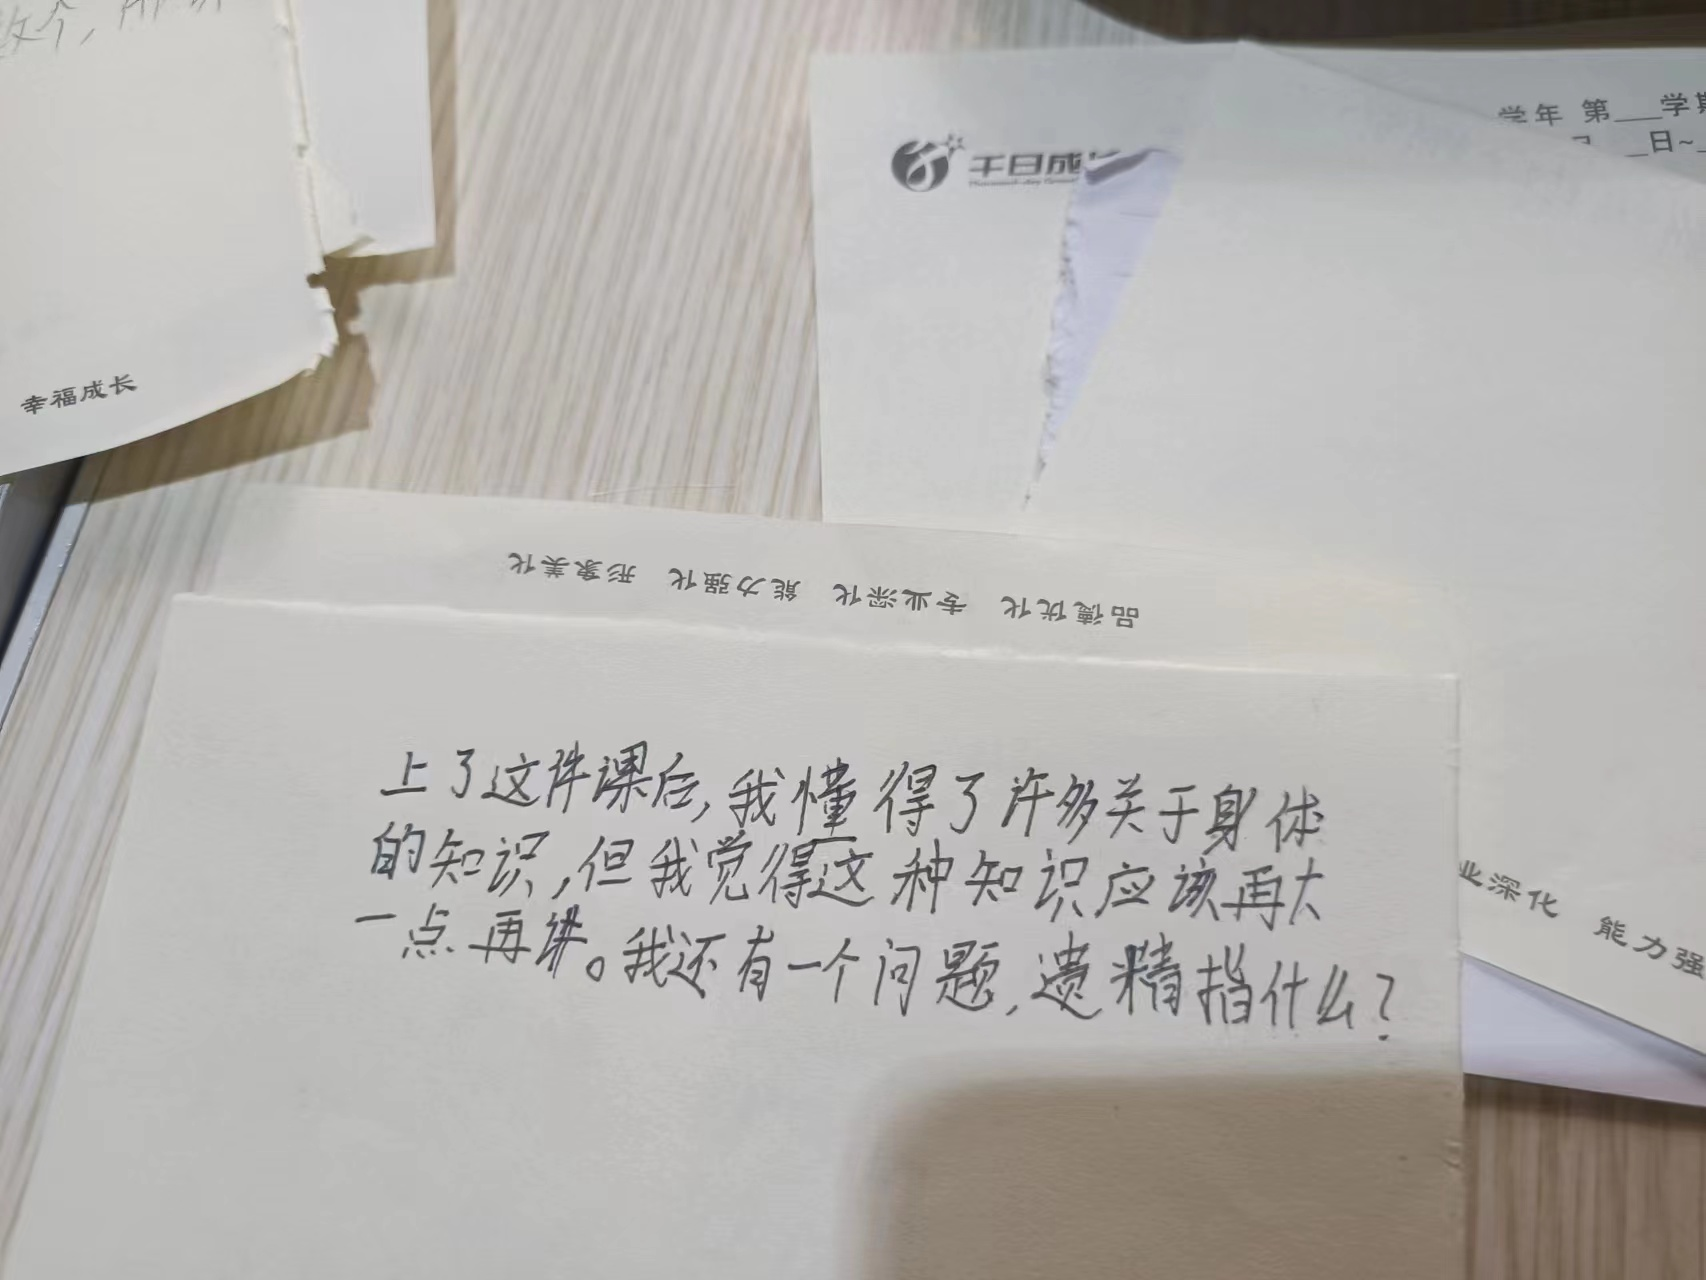 幸福成长
千日成长
学年 第___学期
日~
品德优化 专业深化 能力强化 形象美化
上了这件课后,我懂得了许多关于身体
的知识,但我觉得这种知识应该再大
一点再讲。我还有一个问题,遗精指什么?
业深化 能力强